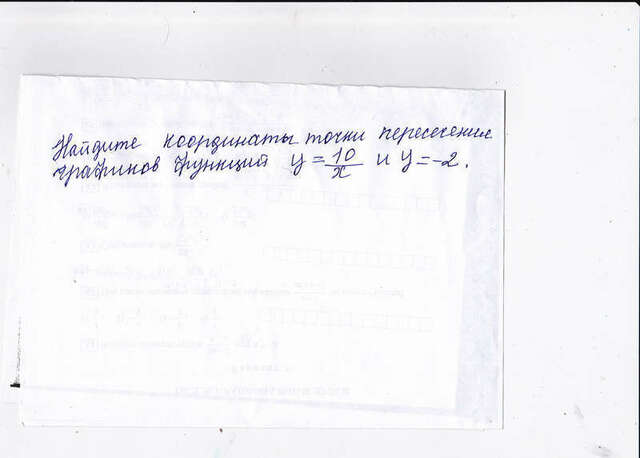 Найдите координаты точки пересечения
графиков функций y = 10/x и y = -2.